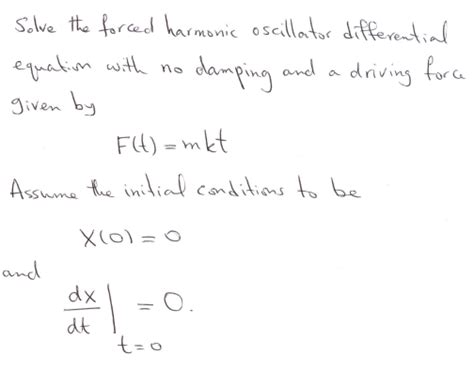 Solve the forced harmonic oscillator differential
equation with no damping and a driving force
given by
F(t) = mkt
Assume the initial conditions to be
X(0) = 0
and
dx/dt |t=0 = 0.